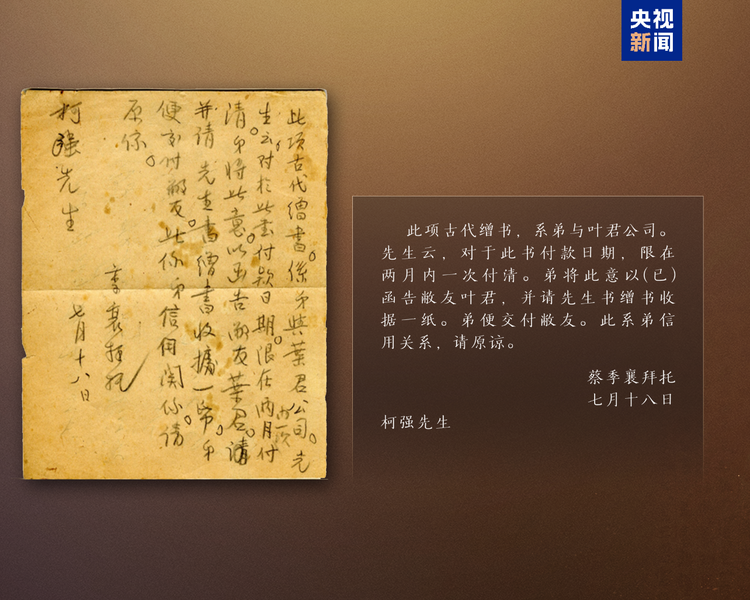 央视
新闻
此项古代繒書。係弟與葉君公司。先
生云,对於此書付款日期。限在两月内一次付
清。弟将此意以函告敝友葉君。请
并请 先生書繒書收據一帋。弟
便交付敝友。此係弟信用関係。请
原谅。
季襄拜托
七月十八日
柯强先生
此项古代缯书,系弟与叶君公司。
先生云,对于此书付款日期,限在
两月内一次付清。弟将此意以(已)
函告敝友叶君,并请先生书缯书收
据一纸。弟便交付敝友。此系弟信
用关系,请原谅。
蔡季襄拜托
七月十八日
柯强先生